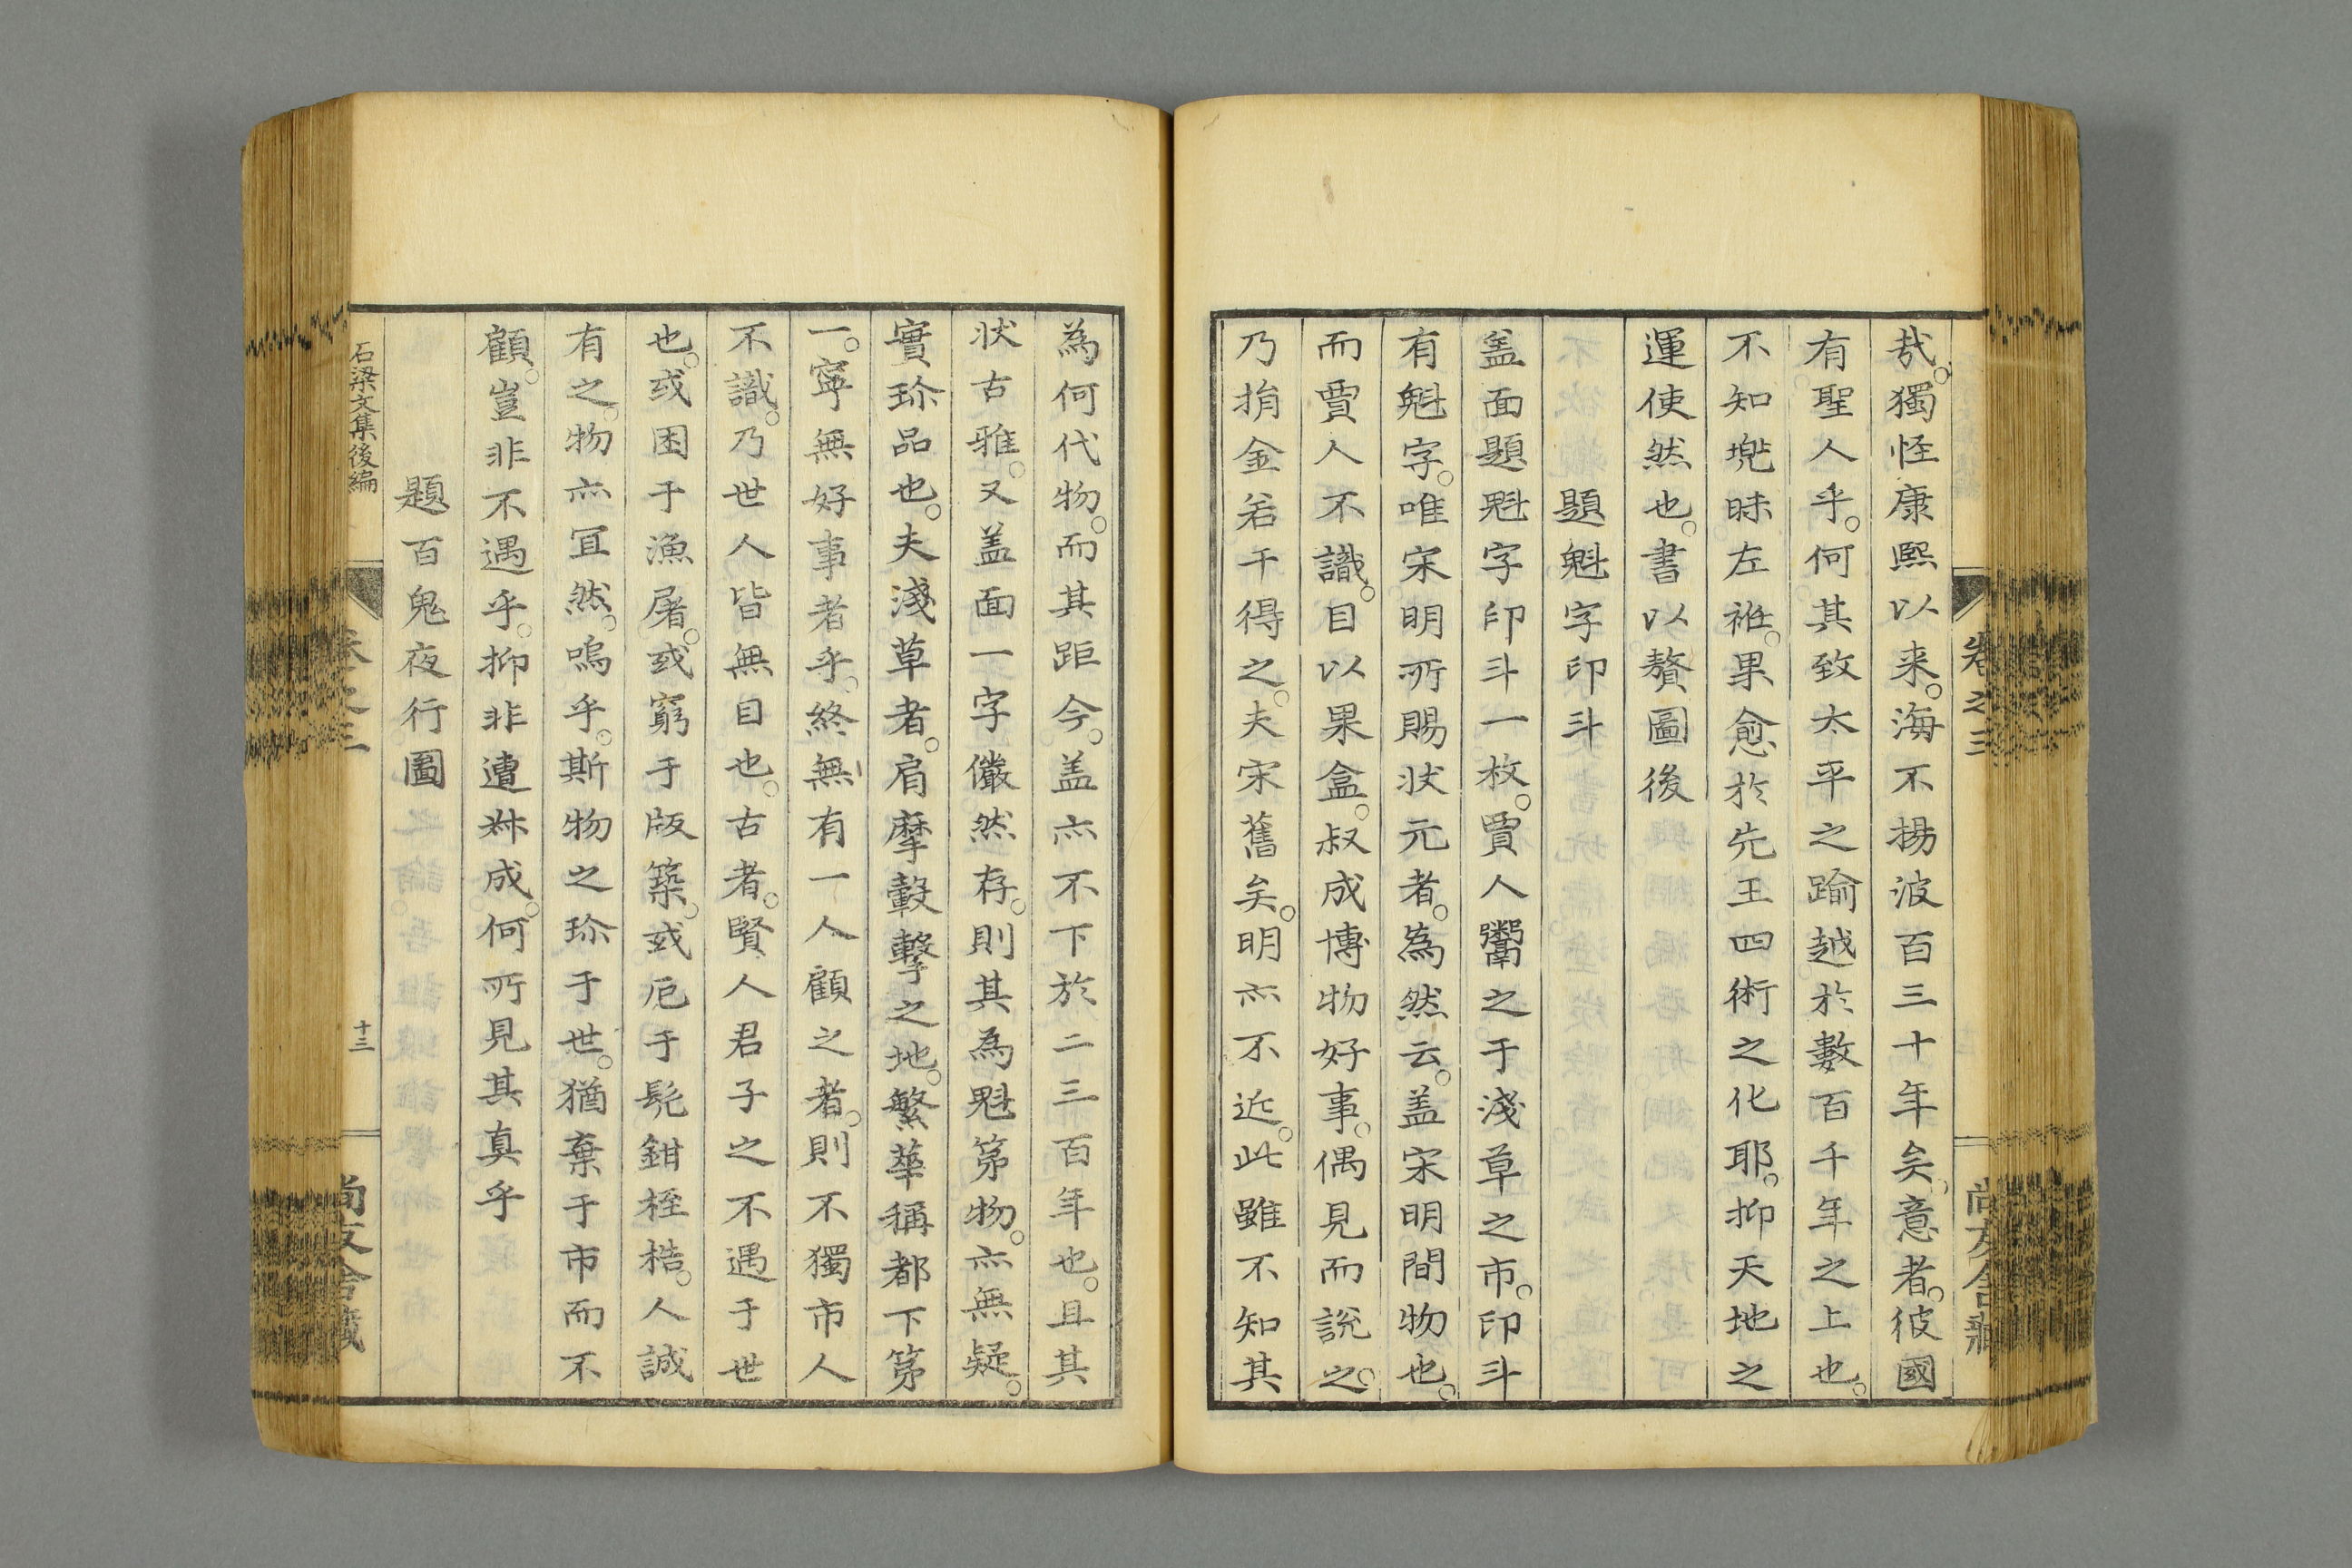 哉。獨怪康熙以来。海不揚波百三十年矣。意者。彼國
有聖人乎。何其致太平之踰越於數百千年之上也。
不知兠昧左袵。果愈於先王四術之化耶。抑天地之
運使然也。書以贅圖後
題魁字印斗
盖面題魁字印斗一枚。賈人鬻之于淺草之市。印斗
有魁字。唯宋明所賜状元者。為然云。盖宋明間物也。
而賈人不識。目以果盒。叔成博物好事。偶見而說之。
乃捐金若干得之。夫宋舊矣。明亦不近。此雖不知其
為何代物。而其距今。盖亦不下於二三百年也。且其
状古雅。又盖面一字儼然存。則其為魁第物。亦無疑。
實珎品也。夫淺草者。肩摩轂擊之地。繁華稱都下第
一。寧無好事者乎。終無有一人顧之者。則不獨市人
不識。乃世人皆無目也。古者。賢人君子之不遇于世
也。或困于漁屠。或窮于版築。或厄于髡鉗桎梏。人誠
有之。物亦冝然。嗚乎。斯物之珎于世。猶棄于市而不
顧。豈非不遇乎。抑非遭叔成。何所見其真乎
題百鬼夜行圖
石梁文集後編
卷之三
十三
尚友舎藏